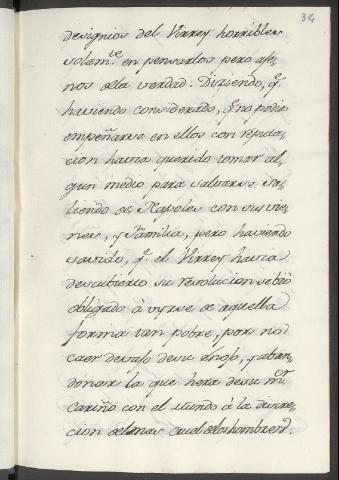 34
designios del Virrey horribles
solam.te en pensarlos pero aje-
nos de la verdad. Diziendo, q.
haviendo considerado, q. no podia
empeñarse en ellos con reputa-
cion havia querido tomar al-
gun medio para salvarse sa-
liendo de Napoles con sus vie-
nes, y familia, pero haviendo
savido, q. el Virrey havia
descubierto su resolucion se vio
obligado à uyrse de aquella
forma tan pobre, por no
caer devajo de su enojo, y aban-
donar la que hera de su m.or
cariño con el Mundo à la discre-
cion del mas cruel de los hombres.